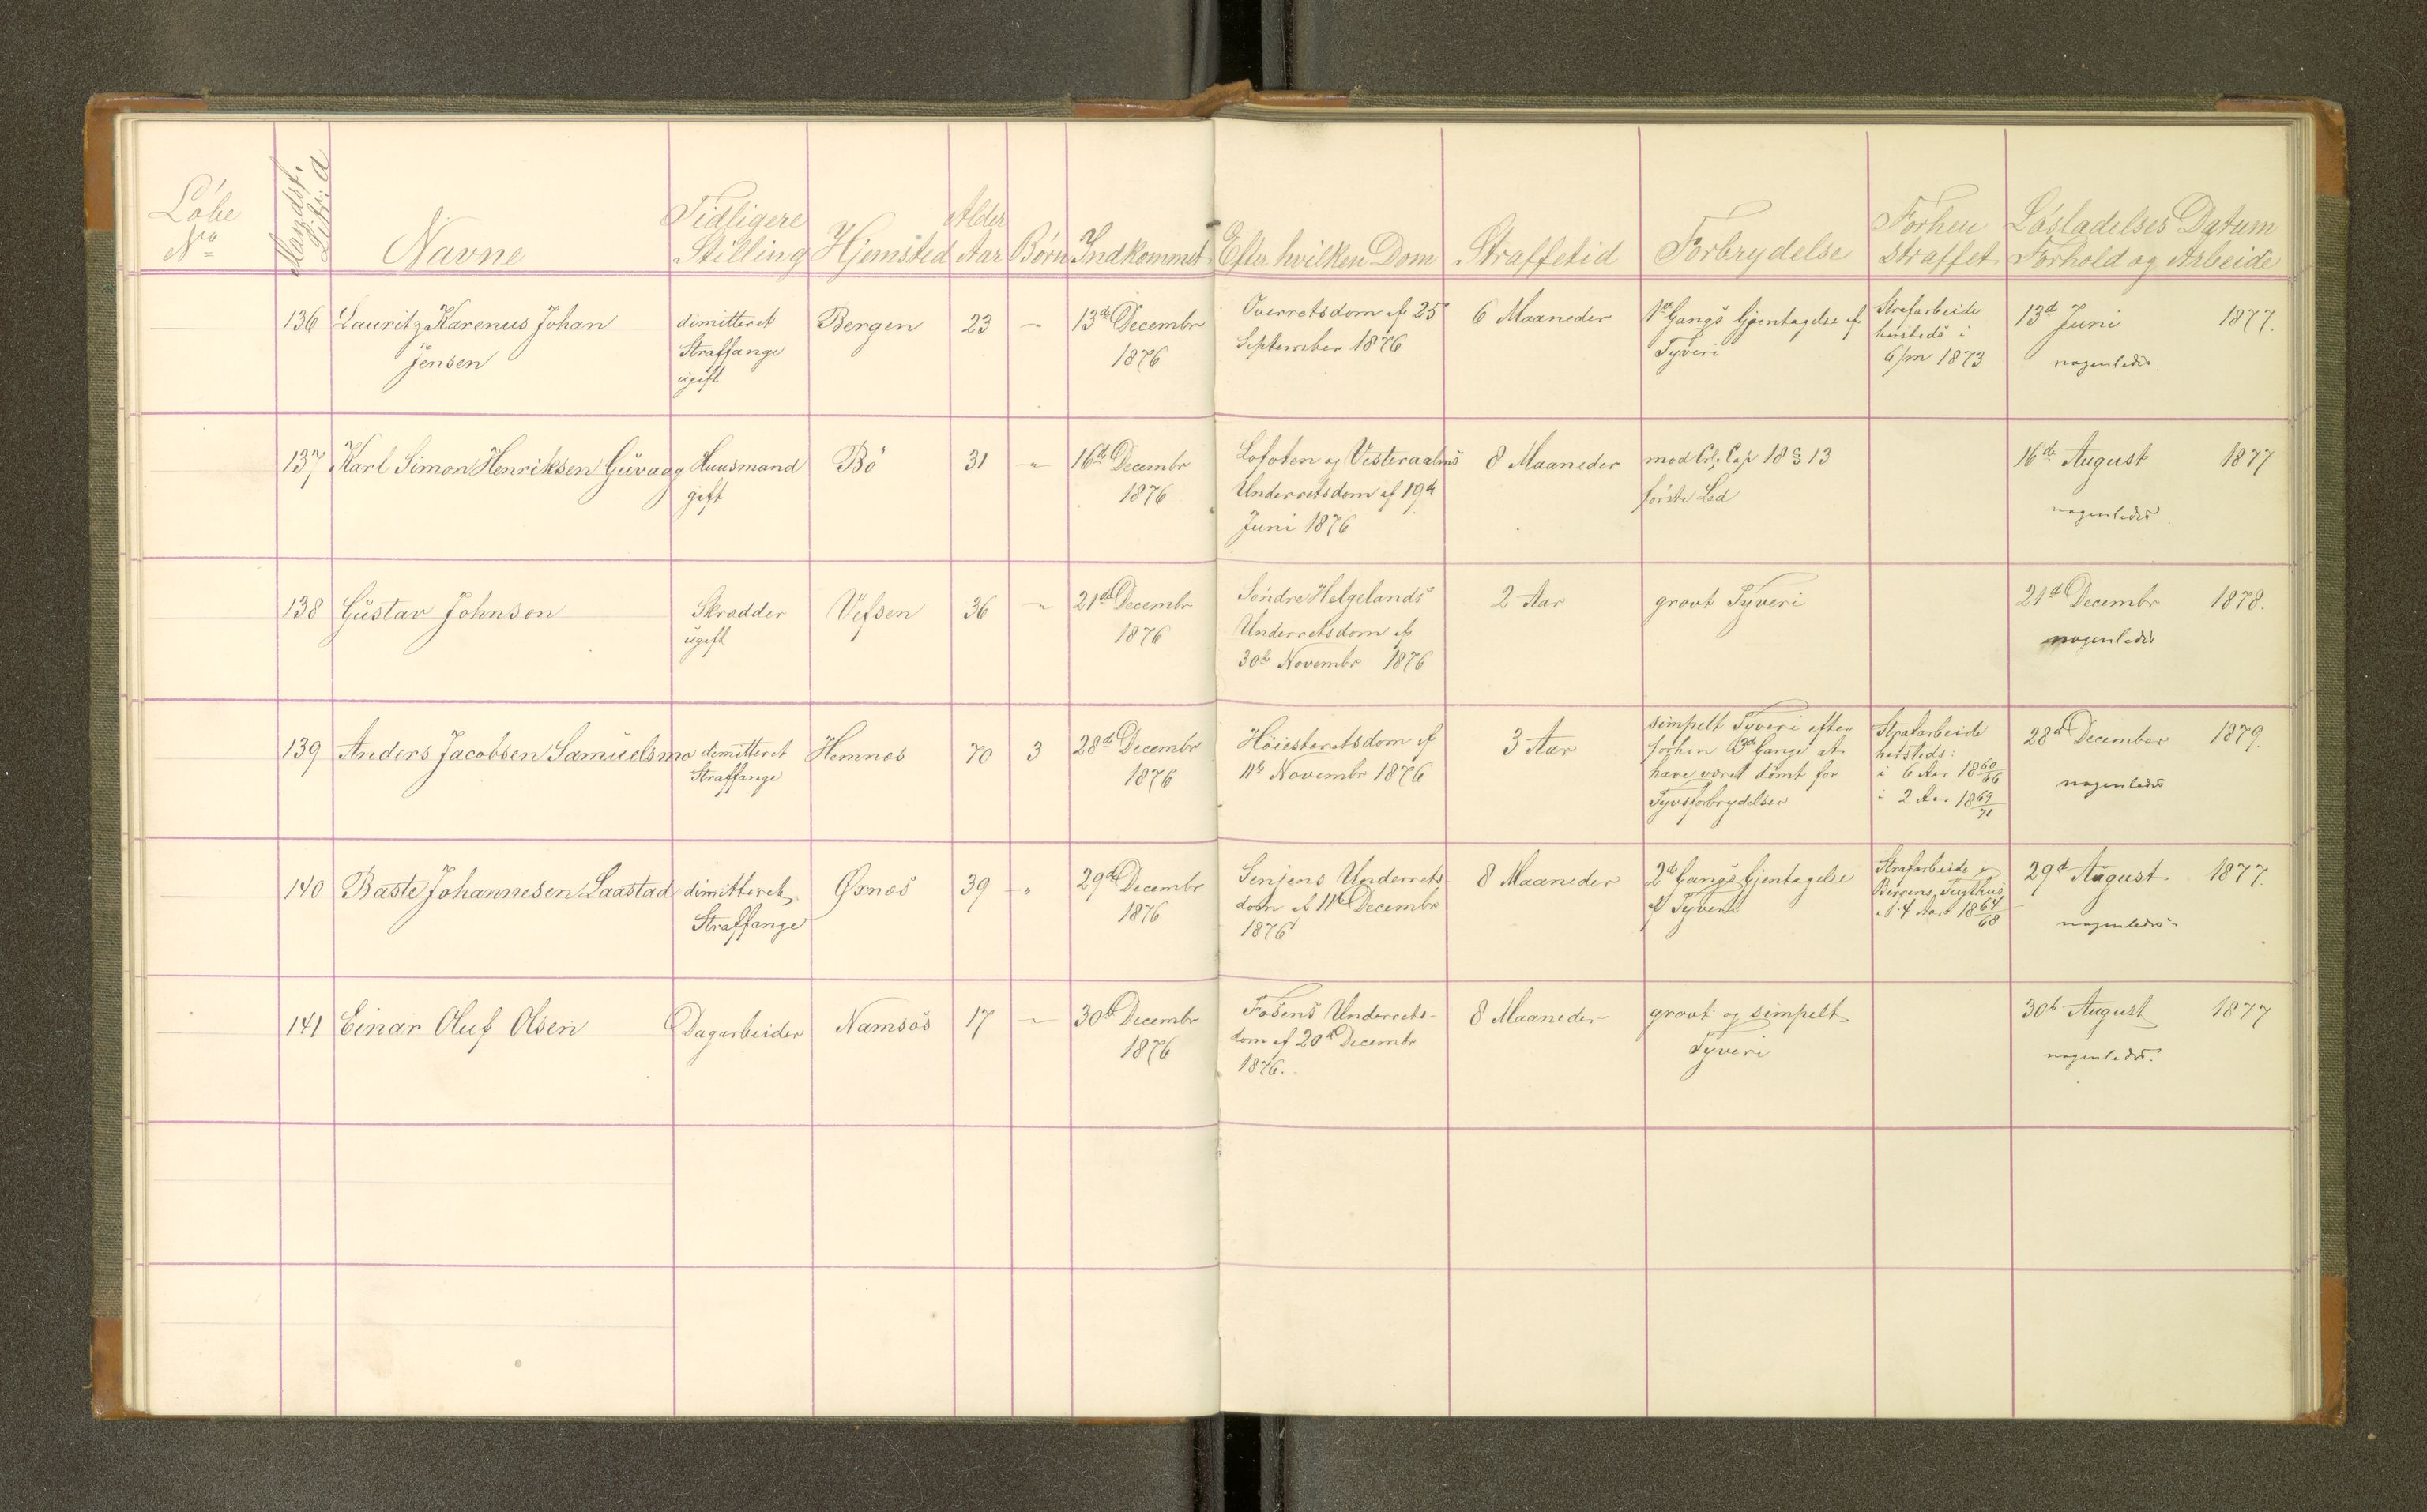 Löbe
No
Mandsf.
Litr: A
Navne
Tidligere
Stilling
Hjemsted
Alder
Aar
Børn
Indkommet
Efter hvilken Dom
Straffetid
Forbrydelse
Forhen
straffet
Løsladelses Datum
Forhold og Arbeide
136 Lauritz Karenus Johan
Jensen
dimitteret
Straffange
ugift
Bergen
23
-"-
13de Decembr
1876
Overretsdom af 25de
September 1876
6 Maaneder
1ste Gangs Gjentagelse af
Tyveri
Strafarbeide
hersteds i
6/m 1873
13de Juni 1877.
nogenledes
137 Karl Simon Henriksen Guvaag
Huusmand
gift
Bö
31
-"-
16de Decembr
1876
Lofoten og Vesteraalens
Underretsdom af 19de
Juni 1876
8 Maaneder
mod Crl. Cap 18 § 13
förste Led
16de August 1877
nogenledes
138 Gustav Johnson
Skrædder
ugift
Vefsen
36
"
21de Decembr
1876
Söndre Helgelands
Underretsdom af
30te Novembr 1876
2 Aar
grovt Tyveri
21de Decembr 1878.
nogenledes
139 Anders Jacobsen Samuelsmo
dimitteret
Straffange
Hemnes
70
3
28de Decembr
1876
Höiesteretsdom af
11te Novembr 1876
3 Aar
simpelt Tyveri efter
forhen 3de Gange at
have været dömt for
Tyvsforbrydelser
Strafarbeide
hersteds:
i 6 Aar 1860/66
i 2 Aar 1869/71
28de December 1879.
nogenledes
140 Baste Johannesen Laastad
dimitteret
Straffange
Øxnes
39
-"-
29de Decembr
1876
Senjens Underrets-
dom af 11te Decembr
1876
8 Maaneder
2de Gangs Gjentagelse
af Tyveri
Strafarbeide
Bergens Tugthus
i 4 Aar 1864/68
29de August 1877.
nogenledes
141 Einar Oluf Olsen
Dagarbeider
Namsos
17
-"-
30te Decembr
1876
Fosens Underrets-
dom af 20de Decembr
1876.
8 Maaneder
grovt og simpelt
Tyveri
30te August 1877
nogenledes.